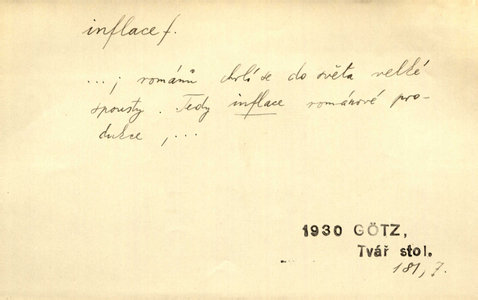 inflace f.
...; románů chrlí se do světa velké
spousty. Tedy inflace románové pro-
dukce, ...
1930 GÖTZ,
Tvář stol.
181, 7.